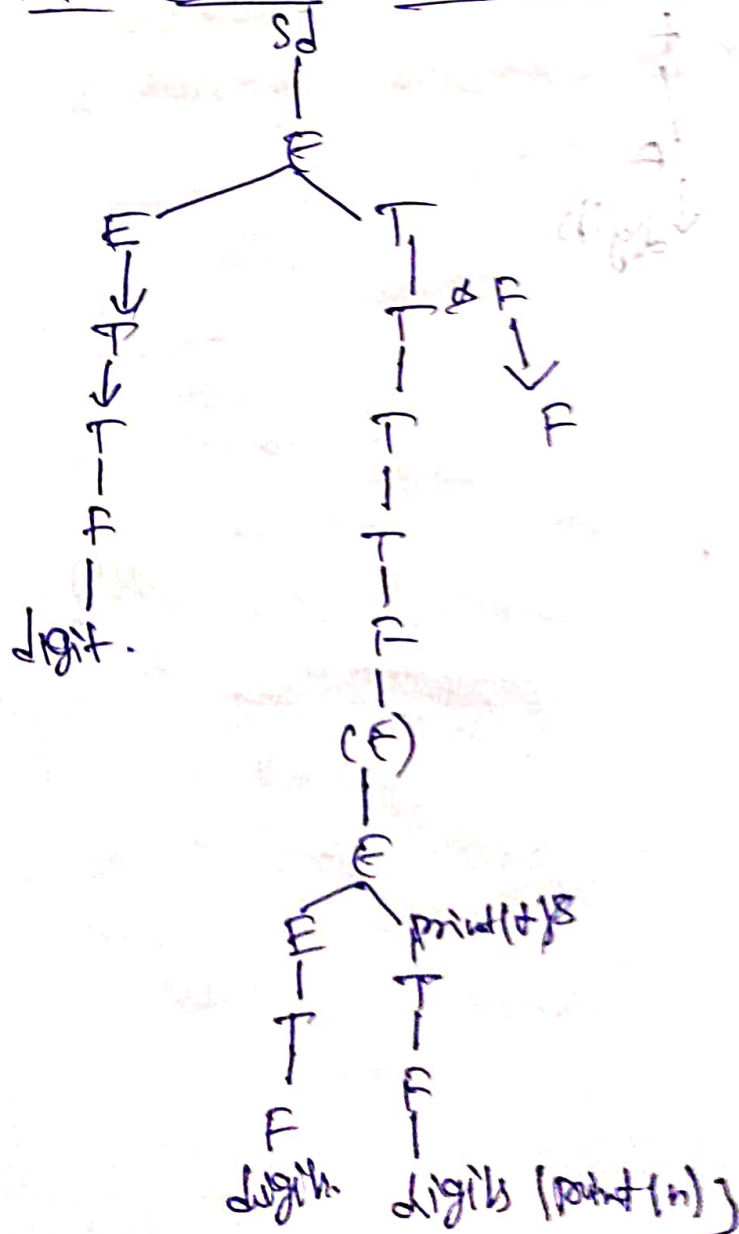 Sd
E
E T
T T & F
T T F
F T
digit. F
(E)
E
E print(t)8
T T
F F
digits. digits (print(n) }